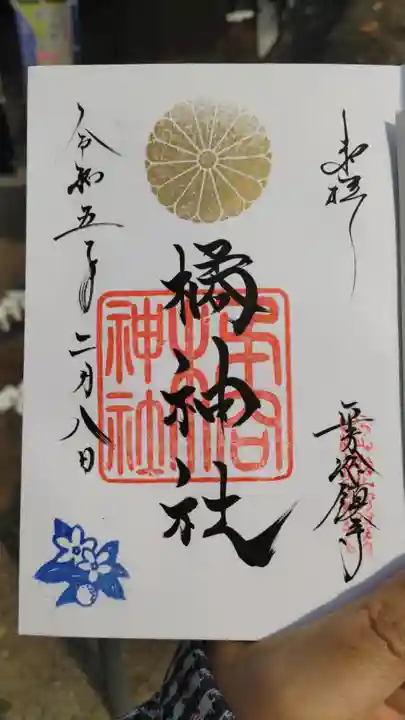 奉拝
鎮守
橘神社
橘神社
令和五年二月八日